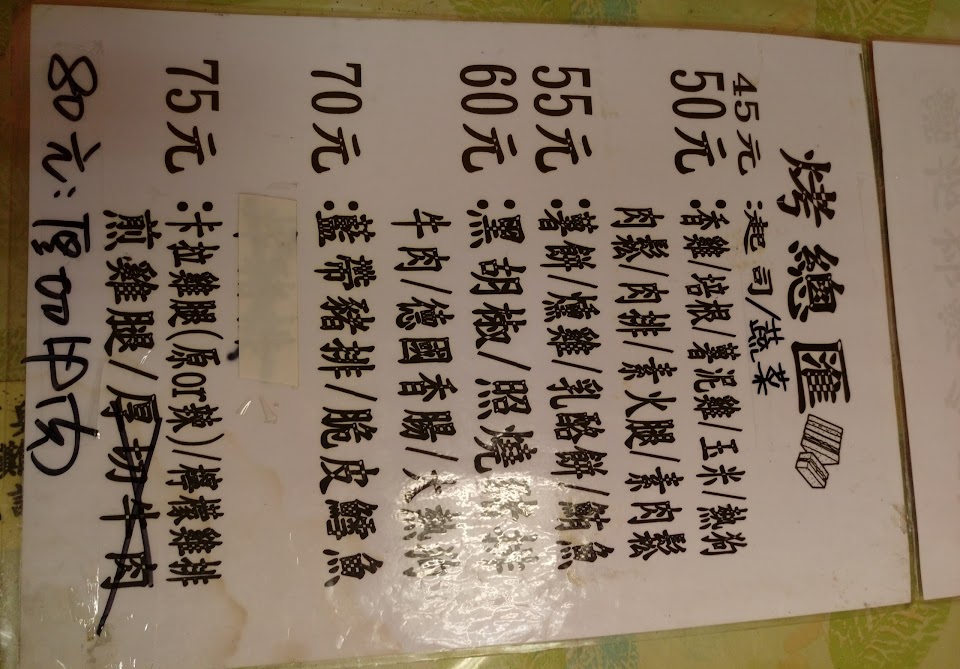 烤總匯
45元:起司/蔬菜
50元:香雞/培根/薯泥雞/玉米/熱狗
肉鬆/肉排/素火腿/素肉鬆
55元:薯餅/燻雞/乳酪餅/鮪魚
60元:黑胡椒/照燒
牛肉/德國香腸/大熱狗
70元:藍帶豬排/脆皮鱈魚
75元:卡拉雞腿(原or辣)/檸檬雞排
煎雞腿/厚切牛肉
80元:厚切牛肉